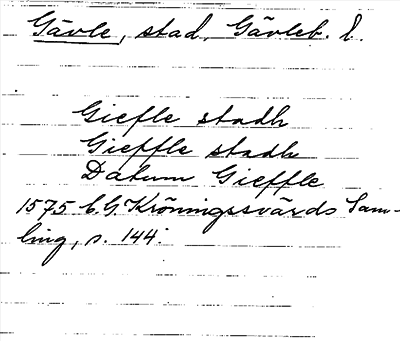 Gävle, stad, Gävleb. l.
Giefle stadh
Gieffle stadh
Datum Gieffle
1575 C.G. Kröningssvärds Sam-
ling, s. 144.